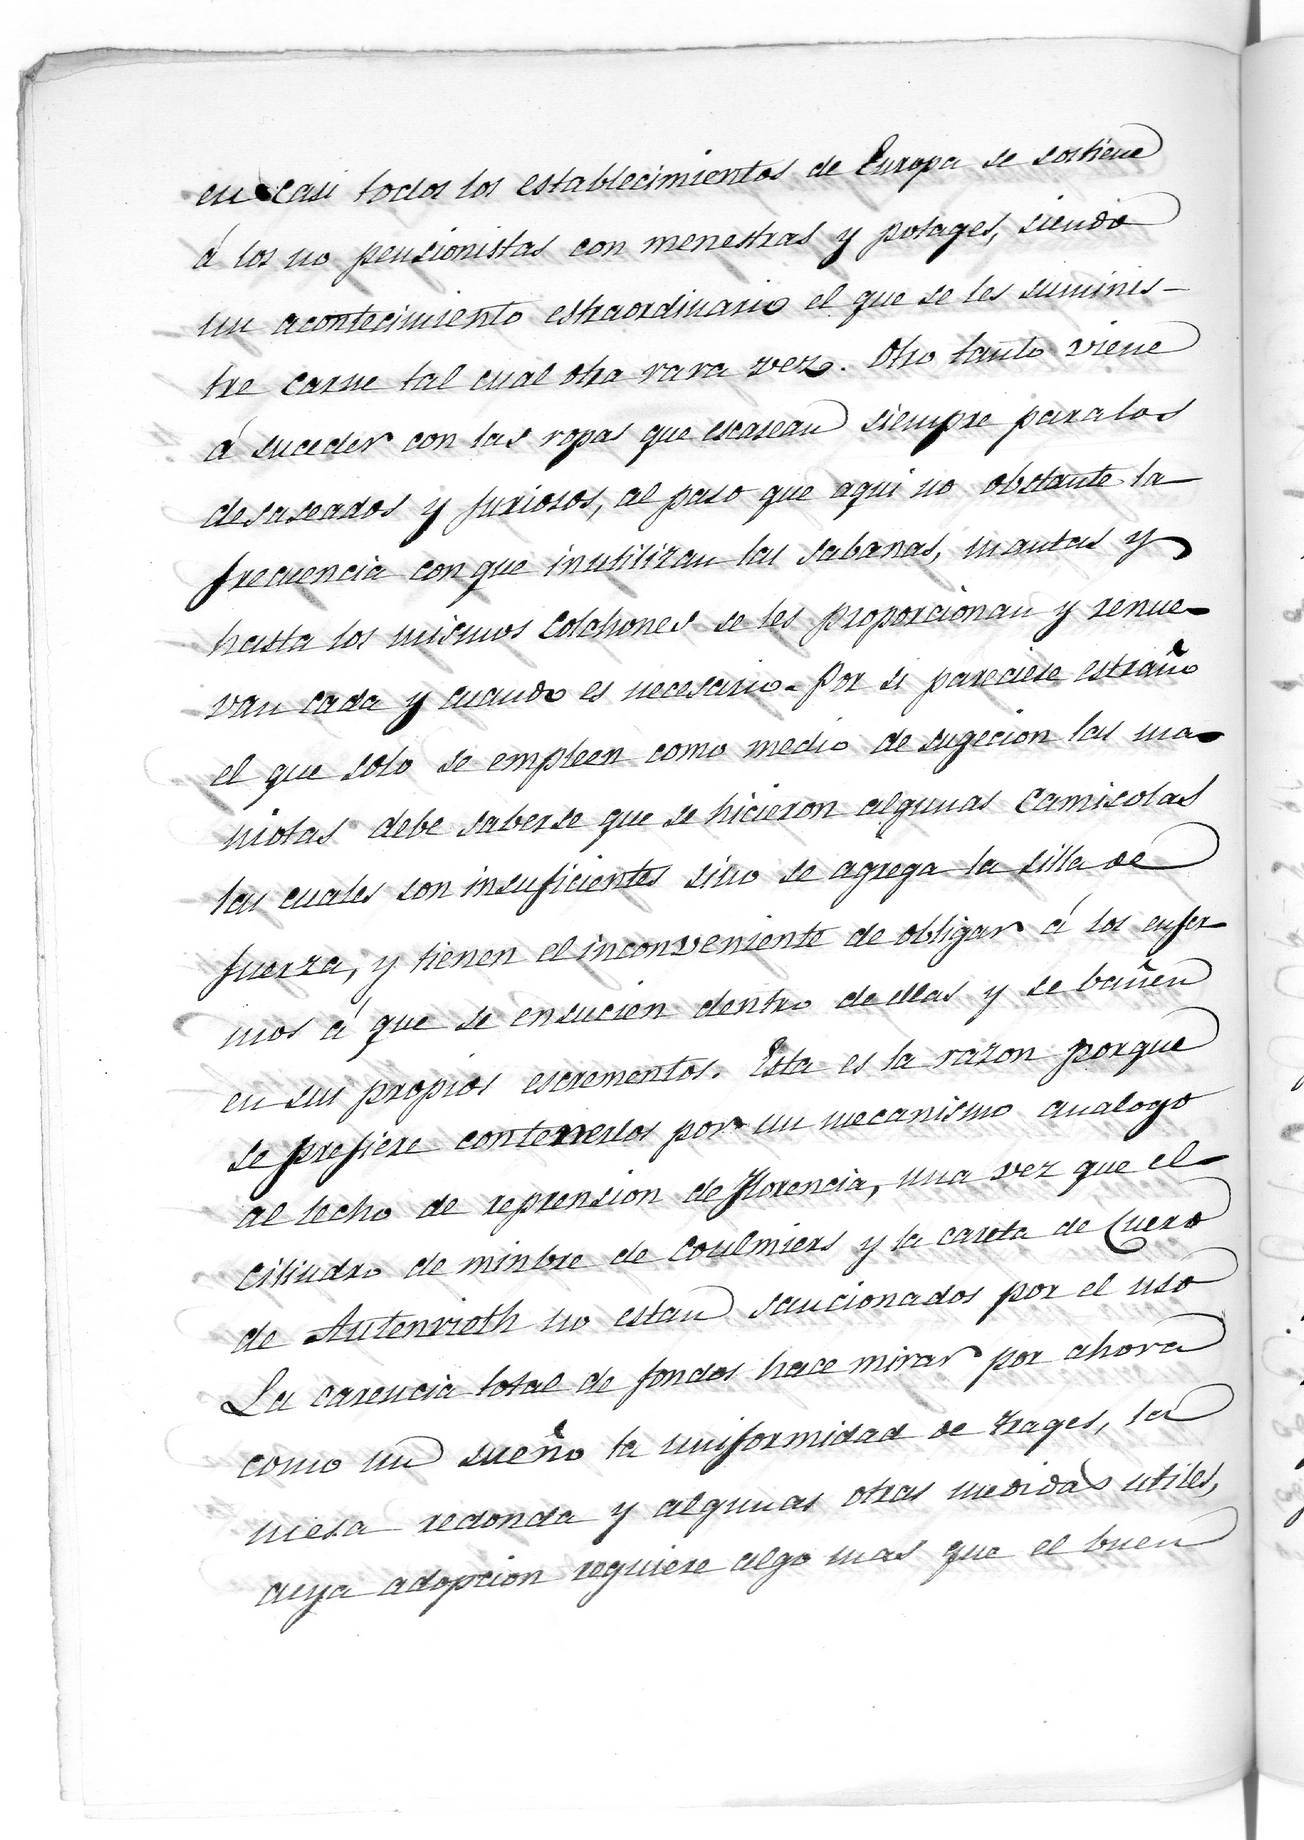 en casi todos los establecimientos de Europa se sostiene
á los no pensionistas con menestras y potages, siendo
un acontecimiento estraordinario el que se les suminis-
tre carne tal cual otra rara vez. Otro tanto viene
á suceder con las ropas que escasean siempre para los
desaseados y furiosos, al paso que aqui no obstante la
frecuencia con que inutilizan las sabanas, mantas y
hasta los mismos colchones se les proporcionan y renue-
van cada y cuando es necesario. Por si pareciese estraño
el que solo se empleen como medio de sugecion las ma-
niotas debe saberse que se hicieron algunas Camisolas
las cuales son insuficientes sino se agrega la silla de
fuerza, y tienen el inconveniente de obligar á los enfer-
mos á que se ensucien dentro de ellas y se bañen
en sus propios escrementos. Esta es la razon porque
se prefiere contenerlos por un mecanismo analogo
al lecho de reprension de Florencia, una vez que el
cilindro de minbre de Coulmiers y la careta de Cuero
de Autenrieth no estan sancionados por el uso
La carencia total de fondos hace mirar por ahora
como un sueño la uniformidad de trages, la
mesa redonda y algunas otras medidas utiles,
cuya adopcion requiere algo mas que el buen